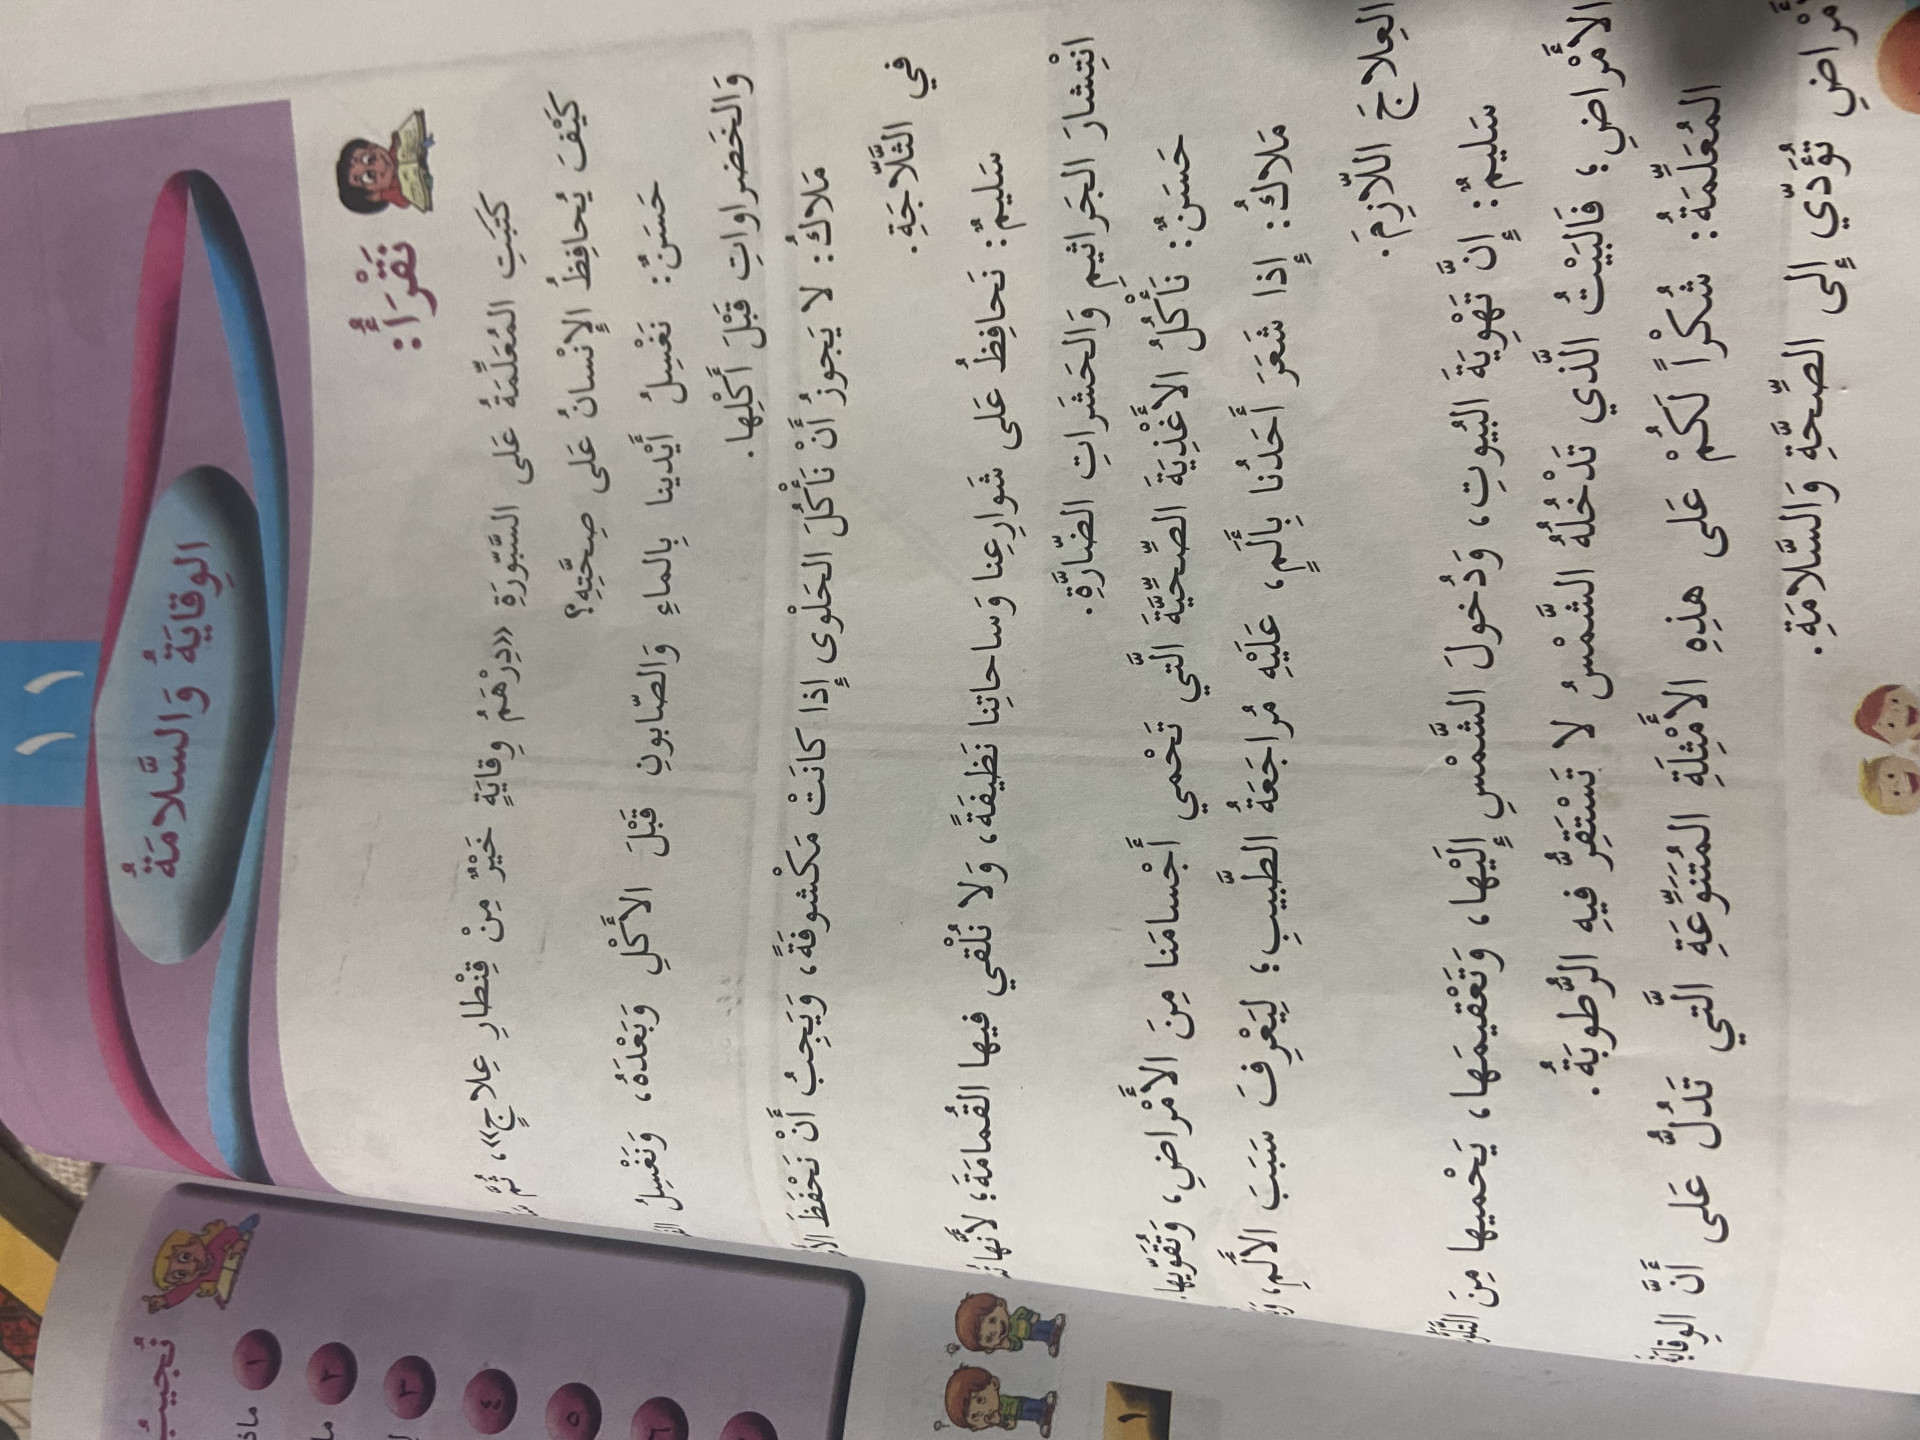 ١١
الوِقايَةُ وَالسَّلامَةُ
نَقْرَأُ:
كَتَبَتِ المُعَلِّمَةُ عَلى السَّبّورَةِ «دِرْهَمُ وِقايَةٍ خَيْرٌ مِنْ قِنْطارِ عِلاجٍ»، ثُمَّ
كَيْفَ يُحافِظُ الإِنْسانُ عَلى صِحَّتِهِ؟
حَسَنٌ: نَغْسِلُ أَيْدينا بِالماءِ وَالصّابونِ قَبْلَ الأَكْلِ وَبَعْدَهُ، وَنَغْسِلُ
وَالخَضراواتِ قَبْلَ أَكْلِها.
مَلاكُ: لا يَجوزُ أَنْ نَأْكُلَ الحَلْوى إِذا كانَتْ مَكْشوفَةً، وَيَجِبُ أَنْ نَحْفَظَ
في الثَّلّاجَةِ.
سَليمٌ: نَحافِظُ عَلى شَوارِعِنا وَساحاتِنا نَظيفَةً، وَلا نُلْقي فيها القُمامَةَ؛ لأَنَّها
انْتِشارَ الجَراثيمِ وَالحَشَراتِ الضّارَّةِ.
حَسَنٌ: نَأْكُلُ الأَغْذِيَةَ الصِّحِّيَّةَ الَّتي تَحْمي أَجْسامَنا مِنَ الأَمْراضِ، وَتُقَوّيها.
مَلاكُ: إِذا شَعَرَ أَحَدُنا بِأَلَمٍ، عَلَيْهِ مُراجَعَةُ الطَّبيبِ؛ لِيَعْرِفَ سَبَبَ الأَلَمِ،
العِلاجَ اللّازِمَ.
سَليمٌ: إِنَّ تَهْوِيَةَ البُيوتِ، وَدُخولَ الشَّمْسِ إِلَيْها، وَتَعْقيمَها، يَحْميها مِنَ
الأَمْراضِ؛ فَالبَيْتُ الَّذي تَدْخُلُهُ الشَّمْسُ لا تَسْتَقِرُّ فيهِ الرُّطوبَةُ.
المُعَلِّمَةُ: شُكْراً لَكُمْ عَلى هذِهِ الأَمْثِلَةِ المُتَنَوِّعَةِ الَّتي تَدُلُّ عَلى أَنَّ الوِقايَةَ
تُؤَدّي إِلى الصِّحَّةِ وَالسَّلامَةِ.
نُجيبُ
١
٢
٣
٤
٥
٦
١